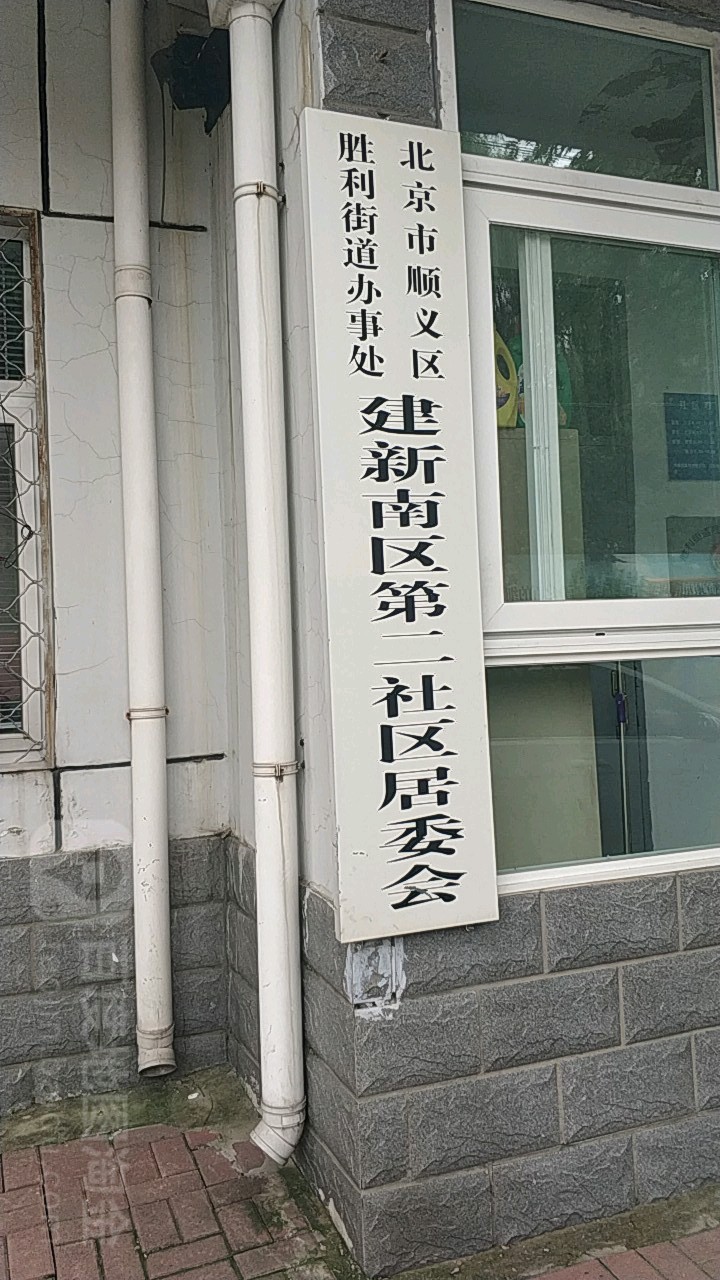 北京市顺义区
胜利街道办事处
建新南区第二社区居委会